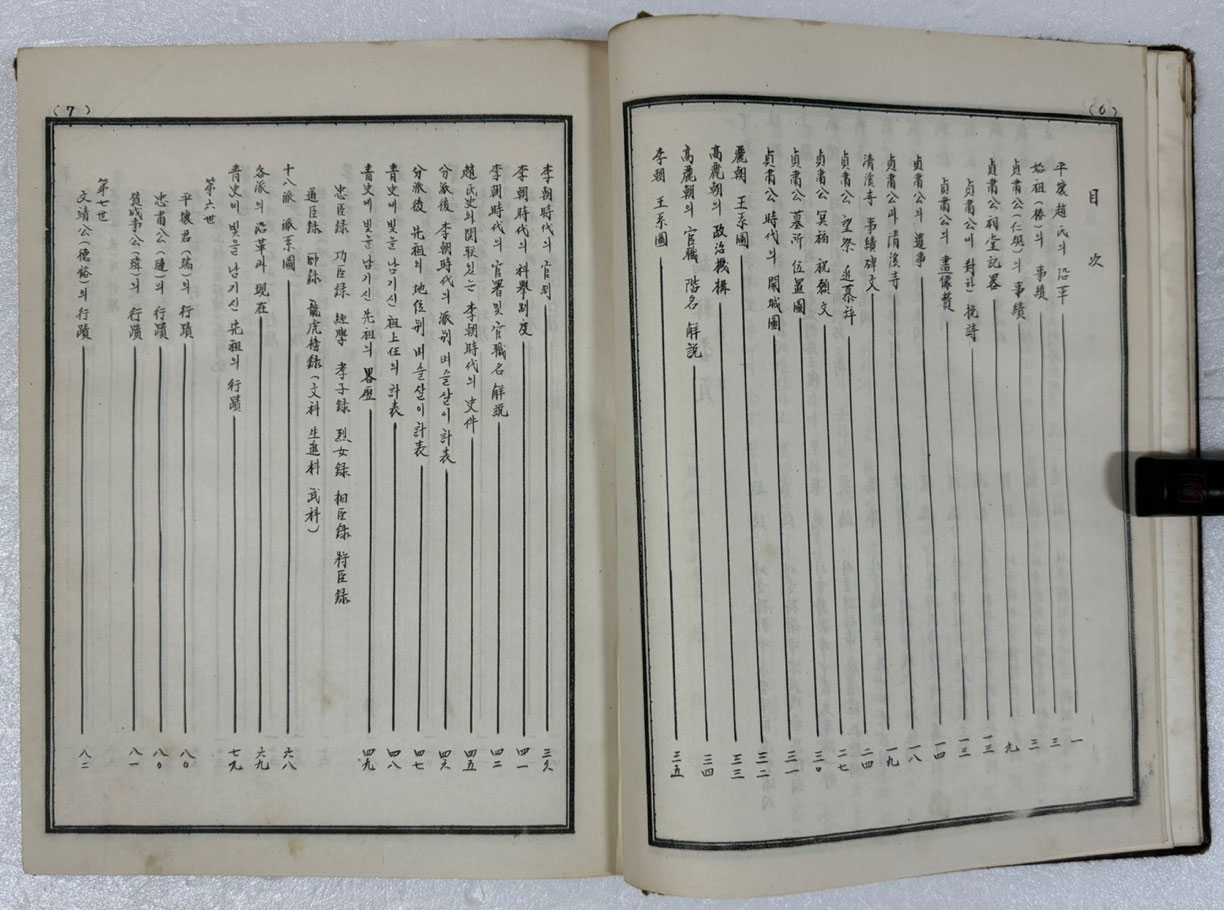 (6)
目次
平壤趙氏의 沿革 一
始祖(椿)의 事績 三
貞肅公(仁規)의 事績 三
貞肅公祠堂記畧 九
貞肅公에 對한 挽詩 一三
貞肅公의 畫像贊 一四
貞肅公의 遺事 一八
貞肅公과 清溪寺 一九
清溪寺 事績碑文 二四
貞肅公 望祭 追慕辞 二七
貞肅公 冥福 祝願文 三〇
貞肅公 墓所 位置圖 三一
貞肅公 時代의 開城圖 三二
麗朝 王系圖 三三
高麗朝의 政治機構
高麗朝의 官職 階名 解説 三四
李朝 王系圖 三五
(7)
李朝時代의 官制 三六
李朝時代의 科擧制度 四一
李朝時代의 官署및 官職名 解説 四二
趙氏史와 関聯있는 李朝時代의 史件 四五
分派後 李朝時代의 派別 벼슬살이 計表 四六
分派後 先祖의 地位別 벼슬살이 計表 四七
青史에 빛을 남기신 祖上任의 計表 四八
青史에 빛을 남기신 先祖의 畧歷 四九
忠臣録 功臣録 經學 孝子録 烈女録 相臣録 将臣録
道臣録 卿録 龍虎榜録(文科 生進科 武科)
十八派 派系圖 六八
各派의 沿革과 現在 六九
青史에 빛을 남기신 先祖의 行蹟 七九
第六世
平壤君(瑞)의 行蹟 八〇
忠肅公(璉)의 行蹟 八〇
贊成事公(瑋)의 行蹟 八一
第七世
文靖公(德裕)의 行蹟 八二